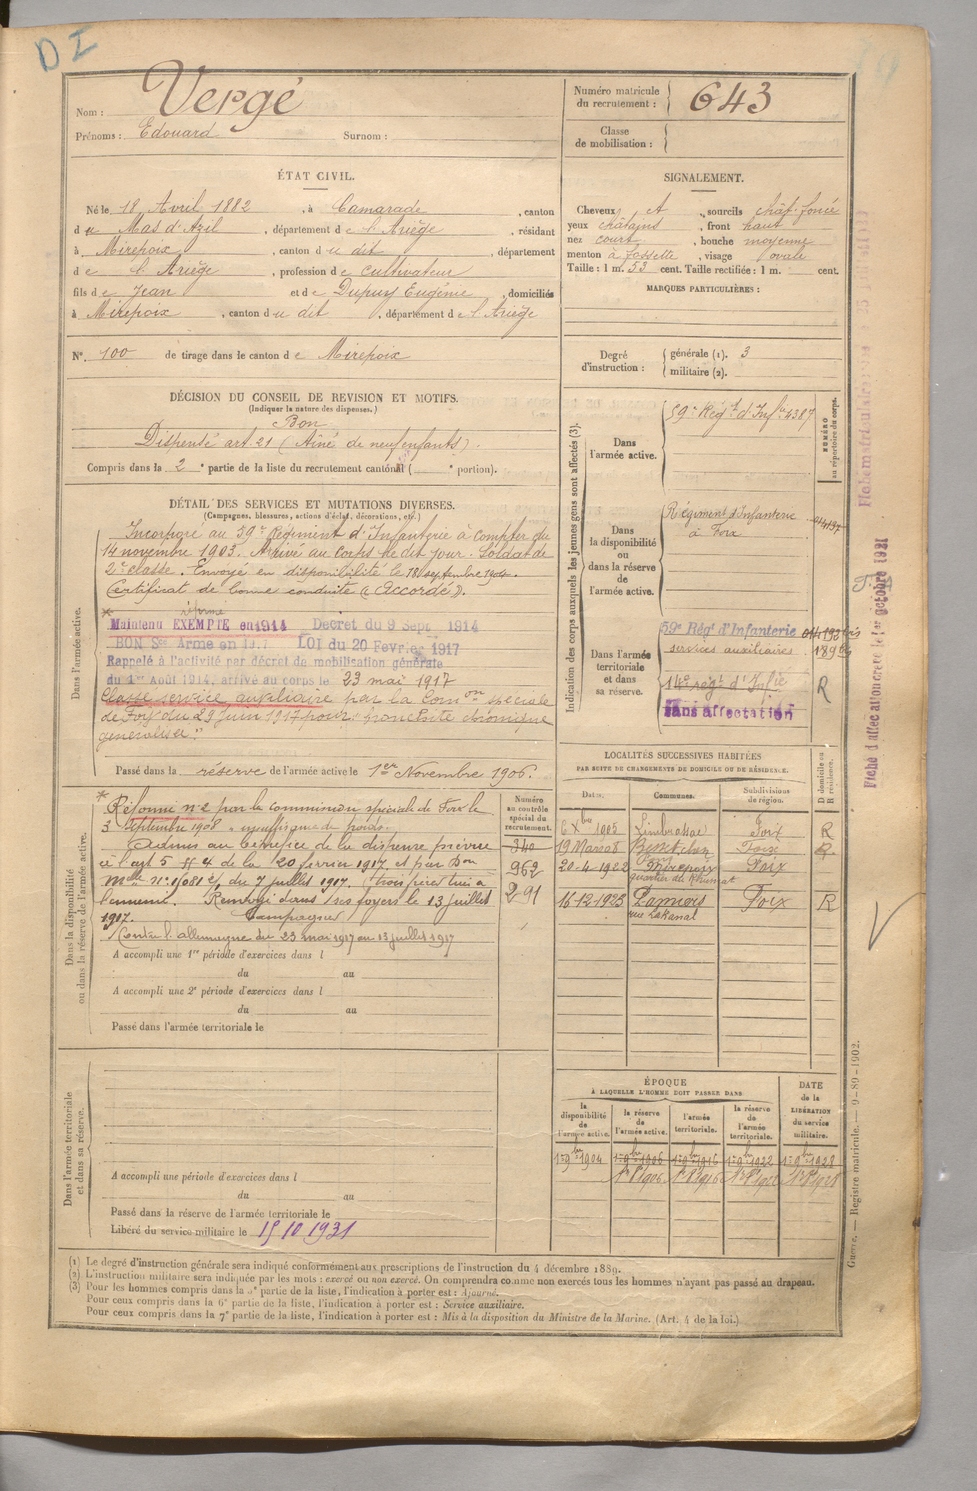 D I
Nom : Vergé
Prénoms : Edouard Surnom :
Numéro matricule
du recrutement : 643
Classe
de mobilisation :
ÉTAT CIVIL.
Né le 18 Avril 1882, à Camarade, canton
du Mas d'Azil, département de l'Ariège, résidant
à Mirepoix, canton du dit, département
de l'Ariège, profession de cultivateur
fils de Jean et de Dupuy Eugénie, domiciliés
à Mirepoix, canton du dit, département de l'Ariège
N° 100 de tirage dans le canton de Mirepoix
SIGNALEMENT.
Cheveux et, sourcils chât-foncé
yeux châtains, front haut
nez court, bouche moyenne
menton à fossette, visage ovale
Taille : 1 m. 53 cent. Taille rectifiée : 1 m. cent.
MARQUES PARTICULIÈRES :
Degré
d'instruction :
générale (1). 3
militaire (2).
DÉCISION DU CONSEIL DE REVISION ET MOTIFS.
(Indiquer la nature des dispenses.)
Bon
Dispensé art 21 (Aîné de neuf enfants)
Compris dans la 2e partie de la liste du recrutement cantonal ( e portion).
DÉTAIL DES SERVICES ET MUTATIONS DIVERSES.
(Campagnes, blessures, actions d'éclat, décorations, etc.)
Dans l'armée active.
Incorporé au 59e Régiment d'Infanterie à compter du
14 novembre 1903. Arrivé au corps le dit jour. Soldat de
2e classe. Envoyé en disponibilité le 18 septembre 1904.
Certificat de bonne conduite "Accordé".
* réformé
Maintenu EXEMPTE en 1914 Décret du 9 Sept 1914
BON Sce Armé en 1917 LOI du 20 Février 1917
Rappelé à l'activité par décret de mobilisation générale
du 1er Août 1914, arrivé au corps le 23 mai 1917
Classé service auxiliaire par la Comon spéciale
de Foix du 29 juin 1917 pour "bronchite chronique
généralisée"
Passé dans la réserve de l'armée active le 1er Novembre 1906.
Indication des corps auxquels les jeunes gens sont affectés (3).
NUMÉRO
au répertoire du corps.
Dans
l'armée active.
59e Régt d'Infie 4387
Dans
la disponibilité
ou
dans la réserve
de
l'armée active.
Régiment d'Infanterie
à Foix
Dans l'armée
territoriale
et dans
sa réserve.
59e Régt d'Infanterie
services auxiliaires
14e régt d'Infie R
Sans affectation
Dans la disponibilité
ou dans la réserve de l'armée active.
* Réformé n°2 par la commission spéciale de Foix le
3 Septembre 1908 "insuffisance de poids"
Admis au bénéfice de la dispense prévue
à l'art 5 § 4 de la 20 février 1917 et par Don
Mlle n° 1/081 c/, du 7 juillet 1917. (trois frères tués à
l'ennemi. Renvoyé dans ses foyers le 13 juillet
1917.
Campagnes
Contre l'allemagne du 23 mai 1917 au 13 juillet 1917
A accompli une 1re période d'exercices dans l
du au
A accompli une 2e période d'exercices dans l
du au
Passé dans l'armée territoriale le
Numéro
au contrôle
spécial du
recrutement.
340
962
291
LOCALITÉS SUCCESSIVES HABITÉES
PAR SUITE DE CHANGEMENTS DE DOMICILE OU DE RÉSIDENCE.
Dates. Communes. Subdivisions
de région. D domicile ou
R résidence.
6 Xbre 1905 Limbrassac Foix R
19 Mars 08 Foix R
20-4-1922 Mirepoix Foix
16-12-1923 Pamiers Foix R
rue Lakanal
Dans l'armée territoriale
et dans sa réserve.
A accompli une période d'exercices dans l
du au
Passé dans la réserve de l'armée territoriale le
Libéré du service militaire le 15 10 1931
ÉPOQUE
À LAQUELLE L'HOMME DOIT PASSER DANS
DATE
de la
LIBÉRATION
du service
militaire.
la
disponibilité
de
l'armée active.
la réserve
de
l'armée active.
l'armée
territoriale.
la réserve
de
l'armée
territoriale.
1er 9bre 1904 1er 9bre 1906 1er 9bre 1916 1er 9bre 1922 1er 9bre 1928
(1) Le degré d'instruction générale sera indiqué conformément aux prescriptions de l'instruction du 4 décembre 1889.
(2) L'instruction militaire sera indiquée par les mots : exercé ou non exercé. On comprendra comme non exercés tous les hommes n'ayant pas passé au drapeau.
(3) Pour les hommes compris dans la 5e partie de la liste, l'indication à porter est : Ajourné.
Pour ceux compris dans la 6e partie de la liste, l'indication à porter est : Service auxiliaire.
Pour ceux compris dans la 7e partie de la liste, l'indication à porter est : Mis à la disposition du Ministre de la Marine. (Art. 4 de la loi.)
Guerre. — Registre matricule. — 9-89-1902.